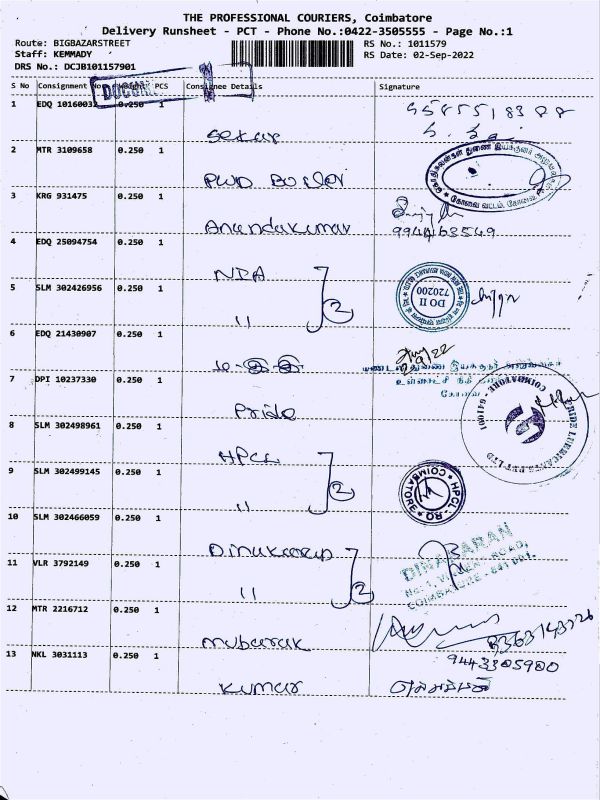 THE PROFESSIONAL COURIERS, Coimbatore
Delivery Runsheet - PCT - Phone No.:0422-3505555 - Page No.:1
Route: BIGBAZARSTREET
RS No.: 1011579
Staff: KEMMADY
RS Date: 02-Sep-2022
DRS No.: DCJB101157901
S No Consignment No Weight PCS Consignee Details Signature
1 EDQ 10160032 0.250 1
Sekar
2 MTR 3109658 0.250 1
PWD Boiler
3 KRG 931475 0.250 1
Anandakumar 9944163549
4 EDQ 25094754 0.250 1
NIA
5 SLM 302426956 0.250 1
" 2
DO II
720200
6 EDQ 21430907 0.250 1
2/9/22
7 DPI 10237330 0.250 1
Pride
PRIDE LUBRICANTS PVT LTD
COIMBATORE - 641001
8 SLM 302498961 0.250 1
HPCL
9 SLM 302499145 0.250 1
" 2
COIMBATORE HPCL - RO
10 SLM 302466059 0.250 1
Dinakaran
11 VLR 3792149 0.250 1
" 2
DINAKARAN
COIMBATORE - 641 001.
12 MTR 2216712 0.250 1
Mubarak
13 NKL 3031113 0.250 1
9443305900
Kumar